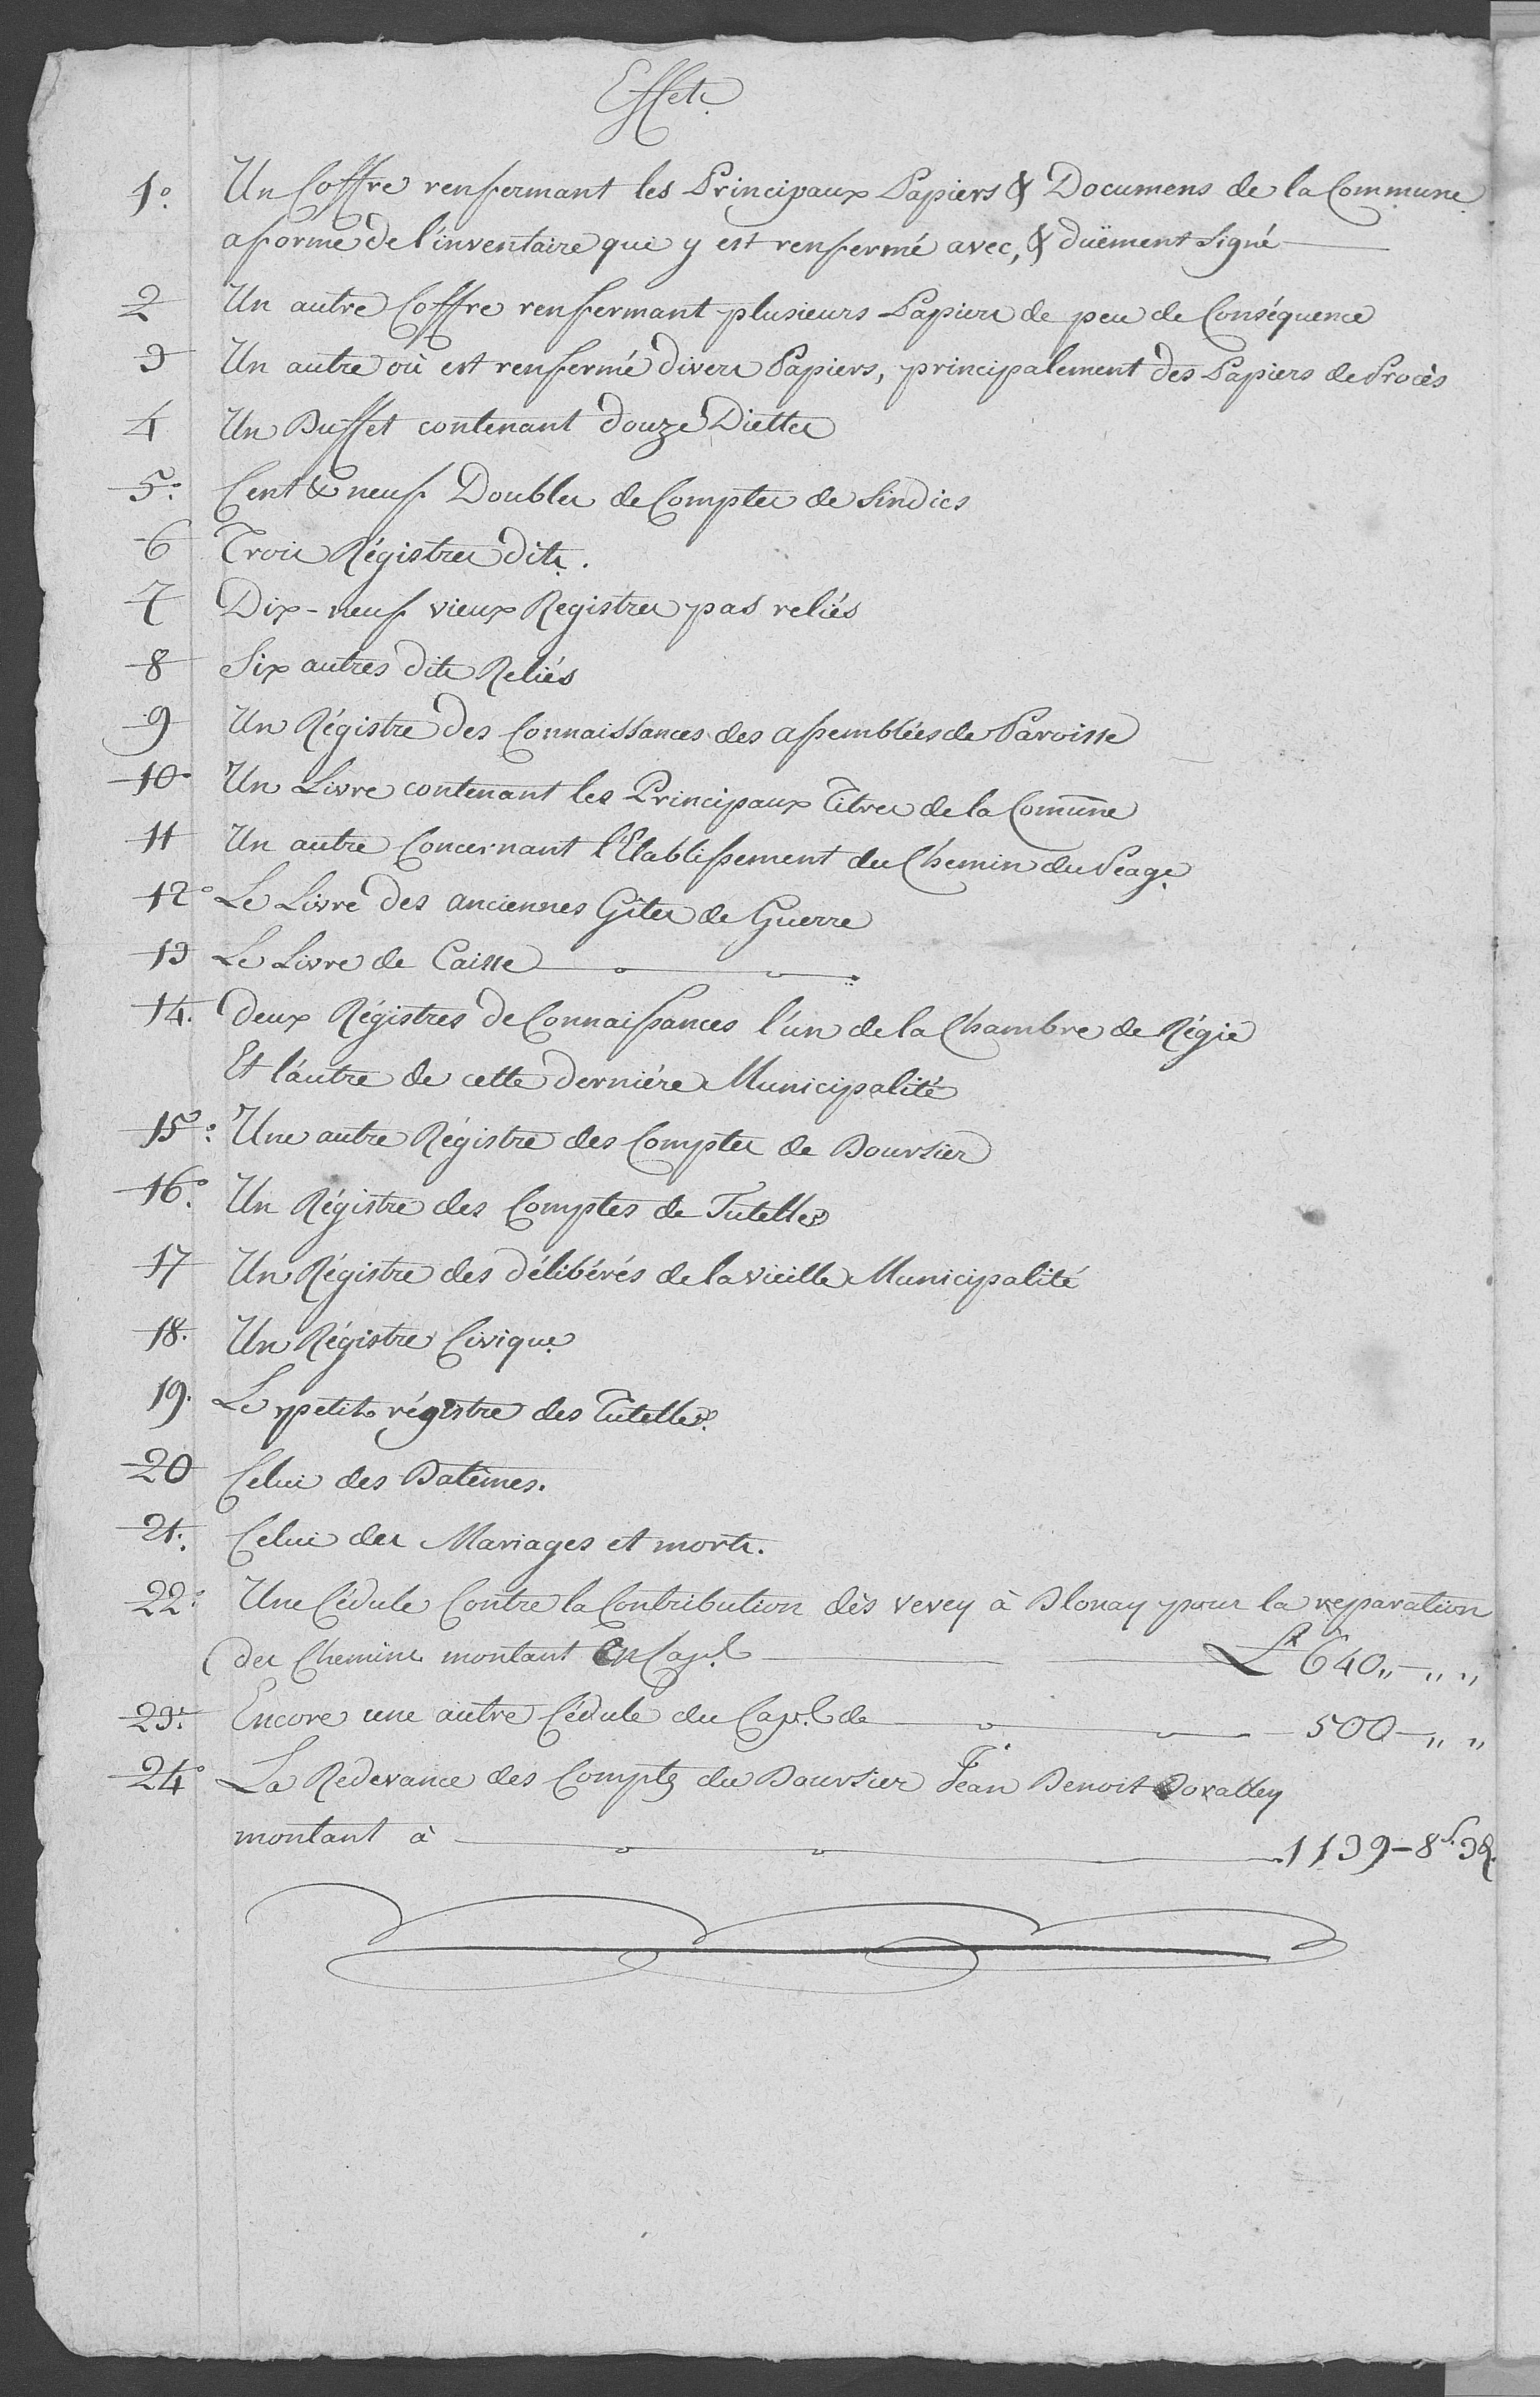 Effets
1.° Un Coffre renfermant les Principaux Papiers & Documens de la Commune
aforme de l'inventaire qui y est renfermé avec, & duëment Signé
2 Un autre Coffre renfermant plusieurs Papiers de peu de Conséquence
3 Un autre où est renfermé divers Papiers, principalement des Papiers de Procès
4 Un Buffet contenant douze Diettes
5.° Cent & neuf Doubles de Comptes de Sindics
6 Trois Régistres dits.
7 Dix-neuf vieux Registres pas reliés
8 Six autres dits Reliés
9 Un Régistre des Connaissances des assemblées de Paroisse
10° Un Livre contenant les Principaux Titres de la Comune
11 Un autre Concernant l'Etablissement du Chemin du Péage
12° Le Livre des anciennes Gites de Guerre
13 Le Livre de Caisse
14. deux Régistres de Connaissances l'un de la Chambre de Régie
Et l'autre de cette derniére Municipalité
15°: Une autre Régistre des Comptes de Boursier
16.° Un Régistre des Comptes de Tutelles
17 Un Régistre des délibérés de la vieille Municipalité
18. Un Régistre Civique
19. Le petit régistre des Tutelles
20 Celui des Batêmes.
21. Celui des Mariages et morts.
22° Une Cédule Contre la Contribution dès Vevey à Blonay pour la reparation
des Chemins montant en Cap.l L 640,,-,, ,,
23.° Encore une autre Cédule du Cap.l de 500-,, ,,
24° La Redevance des Comptes du Boursier Jean Benoit
montant à 1139-8 s. 3